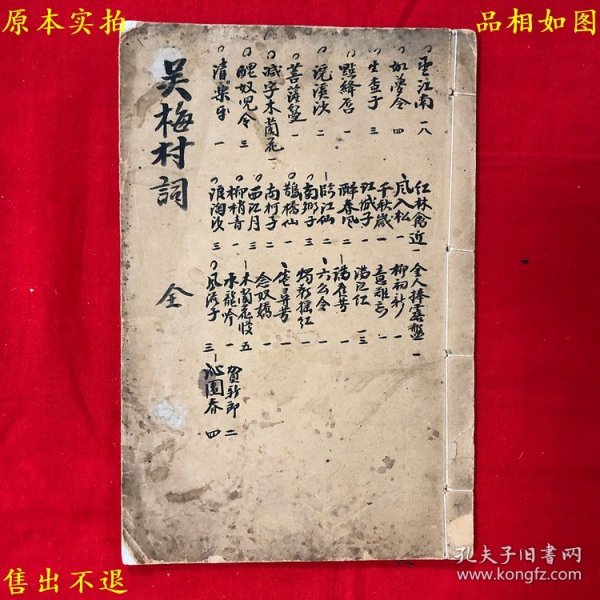 原本实拍
品相如图
吴梅村詞 全
望江南 一八
如夢令 四
生查子 三
點絳唇 一
浣溪沙 二
菩薩蠻 一
减字木蘭花 一
醜奴児令 三
清樂平 一
紅林禽近 一
風入松 一
千秋歲 一
江城子 一
醉春風 二
臨江仙 二
南鄉子 三
鵲橋仙 一
南柯子 二
西江月 三
柳梢青 一
浪淘沙 三
金人捧露盤 一
柳初新 一
意難忘 一
滿江紅 一三
滿庭芳 一
六么令 一
燭影摇紅 一
念奴嬌 一
木蘭花慢 五
水龍吟 一
風流子 三
賀新郎 二
沁園春 四
售出不退
孔夫子旧书网
www.kongfz.com